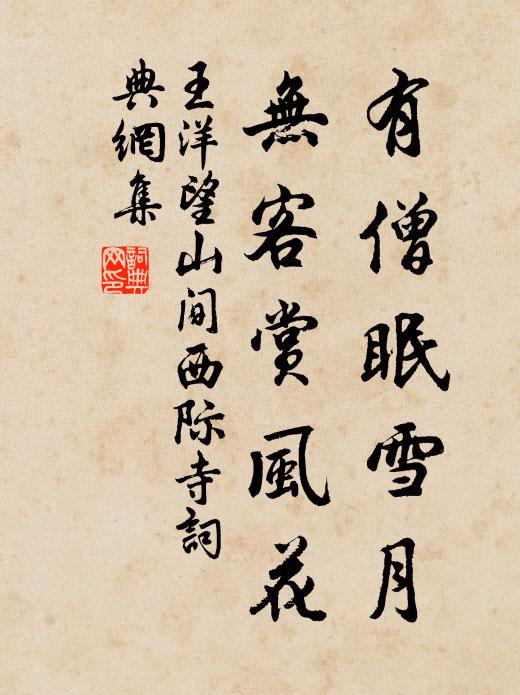 有僧眠雪月
無客賞風花
王洋望山间西际寺詞
典網集
詞典網印